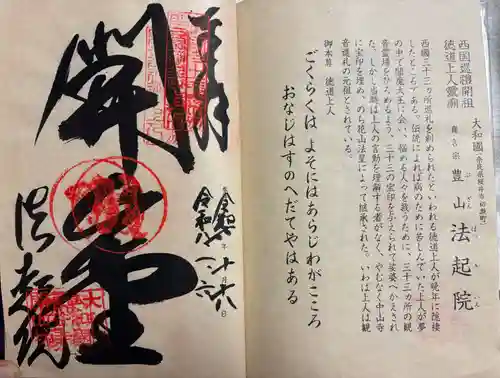 西国巡禮開祖
徳道上人靈廟
大和國(奈良県桜井市初瀬町)
真言宗 豊山 法起院
ぶざん ほっきいん
西國三十三カ所巡礼を創められたといわれる徳道上人が晩年に隠棲
したところである。伝説によれば病のために苦しんでいた上人が夢
の中で閻魔大王に会い、悩める人々を救うために、三十三カ所の観
音霊場をひろめるよう、三十三の宝印を与えられて娑婆へかえされ
た。しかし当時は上人の言動を理解する者がなく、やむなく中山寺
に宝印を埋め、のち花山法皇によって継承された。いわば上人は観
音巡礼の元祖とされている。
御本尊 徳道上人
ごくらくは よそにはあらじわがこころ
おなじはすのへだてやはある
奉拝
令和
十月
日
法起院